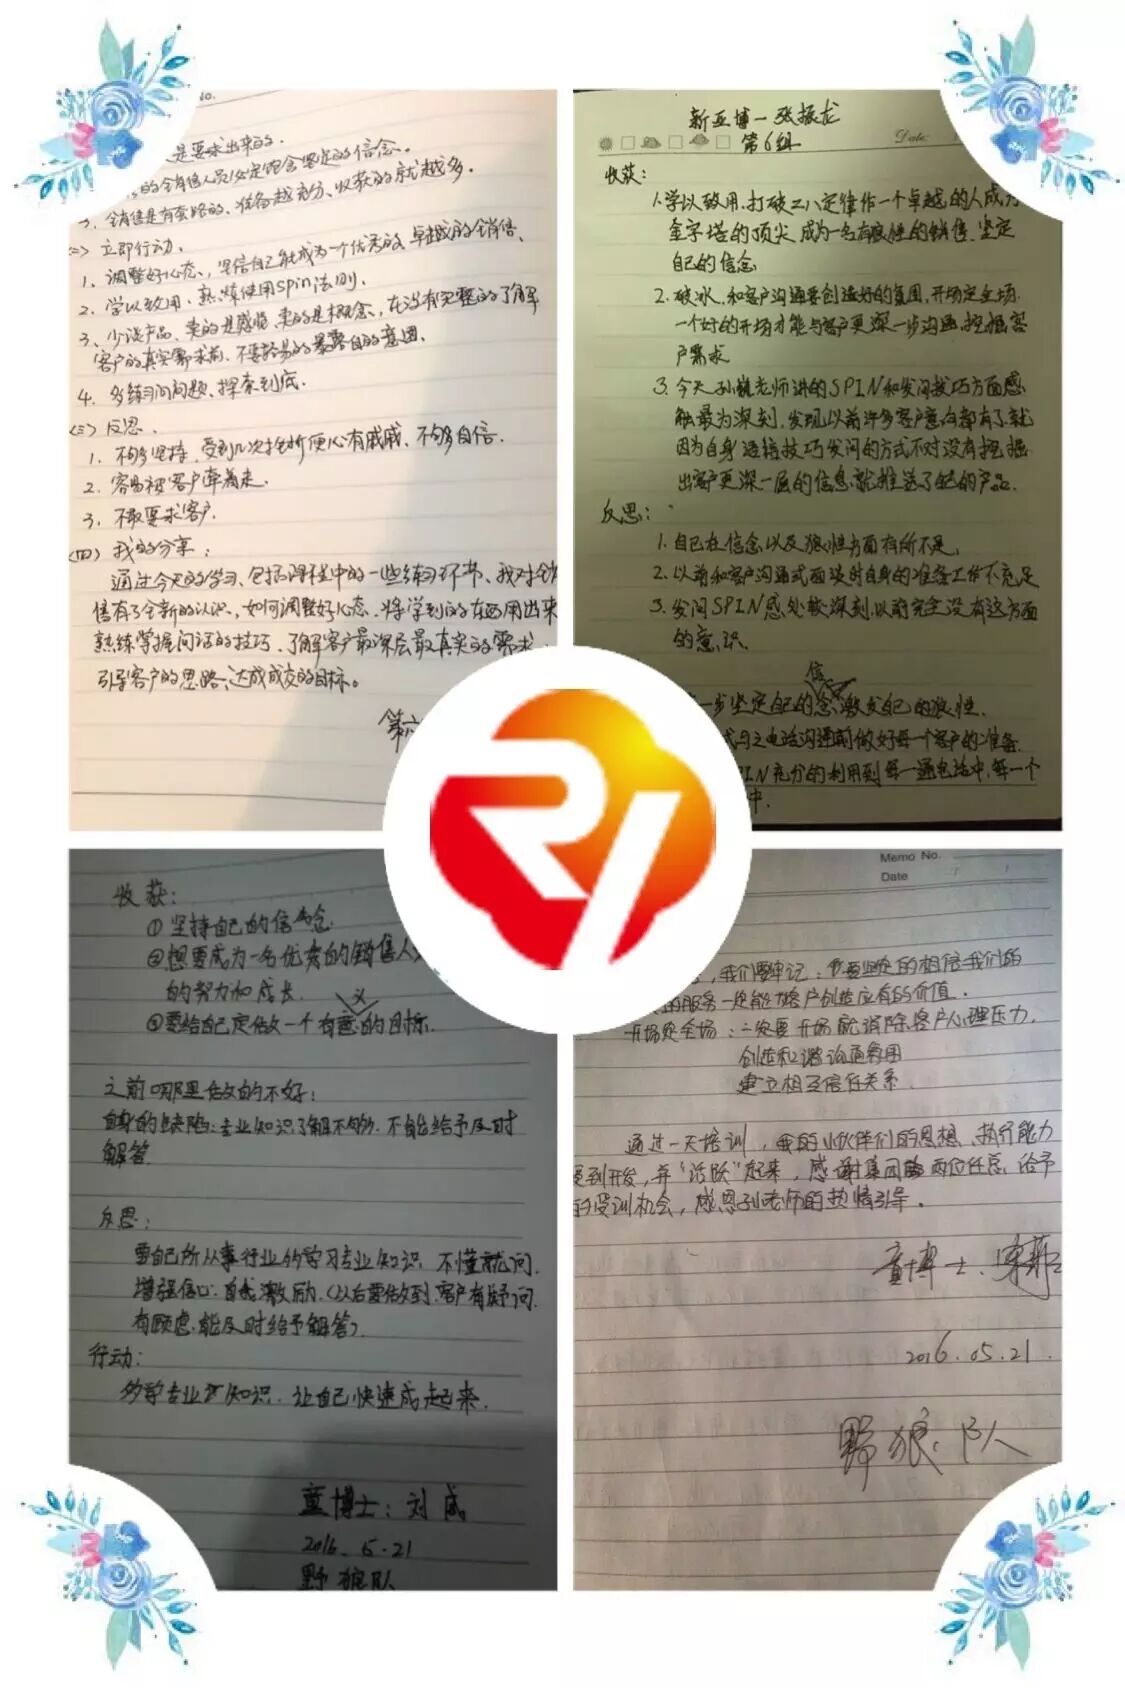 No.
是要求出来的.
的销售人员必定饱含坚定的信念。
3. 销售是有套路的、准备越充分、收获的就越多.
(二) 立即行动.
1. 调整好心态、坚信自己能成为一个优秀的、卓越的销售.
2. 学以致用、熟炼使用Spin法则.
3、少谈产品、卖的是感觉、卖的是概念、在没有完整的了解
客户的真实需求前、不要轻易的暴露自的意图.
4. 多练习问问题、探索到底.
(三) 反思.
1. 不够坚持、受到几次挫折便心有戚戚、不够自信.
2. 容易被客户牵着走.
3. 不敢要求客户.
(四) 我的分享:
通过今天的学习、包括阵程中的一些练习环节、我对销
售有了全新的认识、如何调整好心态、将学到的东西用出来
熟练掌握问话的技巧、了解客户最深层最真实的需求、
引导客户的思路、达成成交的目标。
第六
新亚博一张振龙
第6组
Date:
收获:
1.学以致用,打破二八定律作一个卓越的人成为
金字塔的顶尖 成为一名有狼性的销售.坚定
自己的信念
2.破冰,和客户沟通要创造好的氛围,开场定全场.
一个好的开场才能与客户更深一步沟通,挖掘客
户需求
3.今天孙巍老师讲的SPIN和发问技巧方面感
触最为深刻,发现以前许多客户意向都有了就
因为自身话术技巧发问的方式不对没有挖掘
出客户更深一层的信息就推送了自己的产品.
反思:
1.自己在信念以及狼性方面有所不足.
2.以前和客户沟通或面谈时自身的准备工作不充足
3.发问SPIN感处较深刻,以前完全没有这方面
的意识.
信
步坚定自己的念,激发自己的狼性.
式与之电话沟通前做好每一个客户的准备.
PIN充分的利用到每一通电话中,每一个
中.
收获:
①坚持自己的信念
②想要成为一名优秀的销售人
的努力和成长.
义
③要给自己定做一个有意的目标.
之前哪里做的不好:
自身的缺陷:专业知识了解不够.不能给予及时
解答
反思:
要自己所从事行业的学习专业知识 不懂就问.
增强信心.自我激励.(以后要做到.客户有疑问.
有顾虑.能及时给予解答).
行动:
多学专业知识.让自己快速成起来.
童博士:刘威
2016.5.21
野狼队
Memo No.
Date
,我们要牢记:要坚定的相信我们的
的服务一定能为客户创造应有的价值.
开场定全场:一定要开场就消除客户心理压力.
创造和谐沟通氛围
建立相互信任关系.
通过一天培训,我的小伙伴们的思想、执行能力
受到开发,并“活跃”起来,感谢集团两位任总给予
的受训机会,感恩孙老师的热情引导.
童博士.
2016.05.21.
野狼.队人